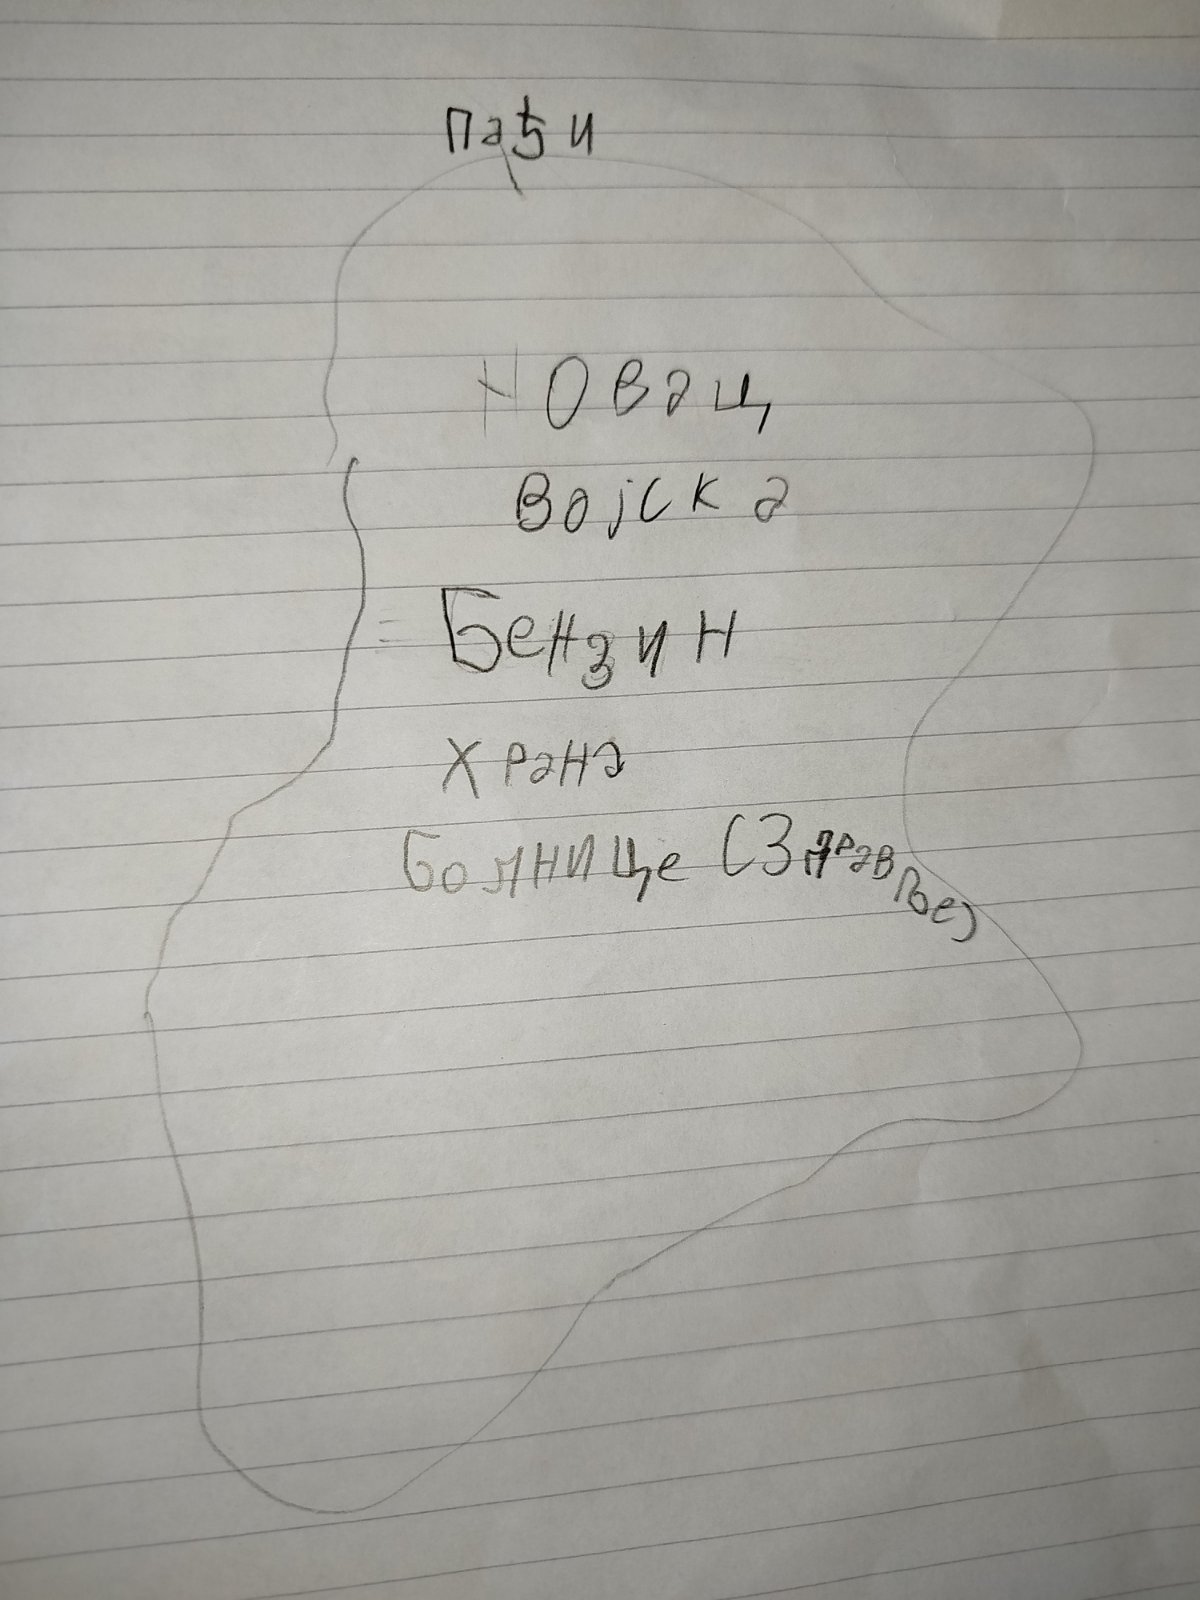 новац
војска
Бензин
храна
Болнице (Здрав
ве)